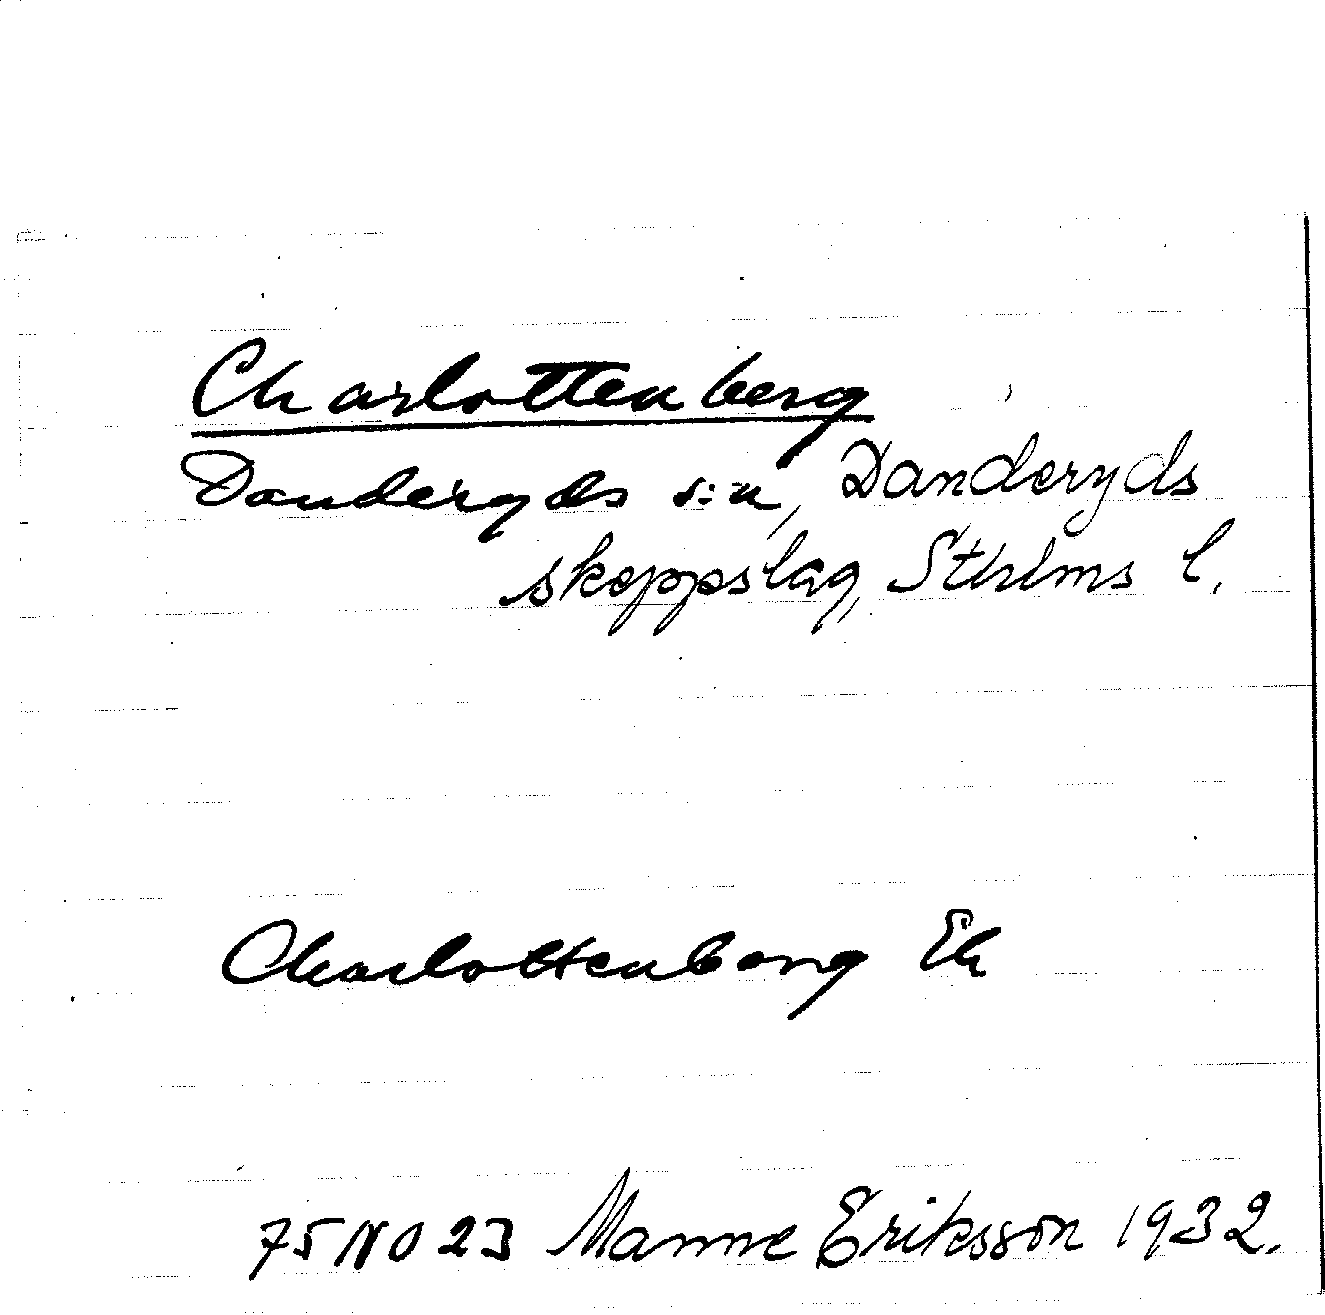 Charlottenberg
Danderyds s:n, Danderyds
skeppslag, Sthlms l.
Charlottenborg Ek
75 NO 23 Manne Eriksson 1932.